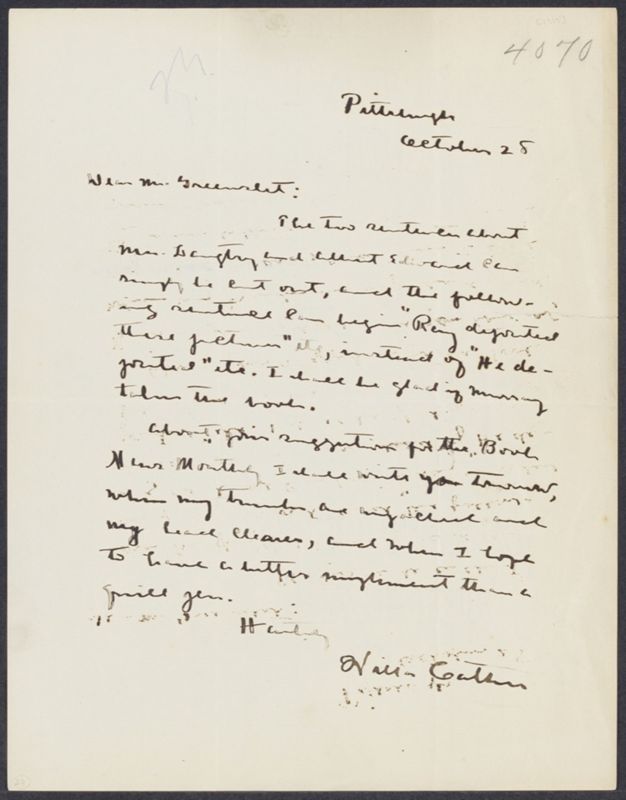 4070
Pittsburgh
October 28
Dear Mr. Greenslet:
The two sentences about
Mrs. Langtry and Albert Edward can
simply be cut out, and the follow-
ing sentence can begin "Ray deposited
these pictures" etc, instead of "He de-
posited" etc. I shall be glad if Murray
takes the book.
About your suggestion for the Book
News Monthly I shall write you tomorrow,
when my trunks are unpacked and
my head clearer, and when I hope
to have a better implement than a
quill pen.
Hastily
Willa Cather